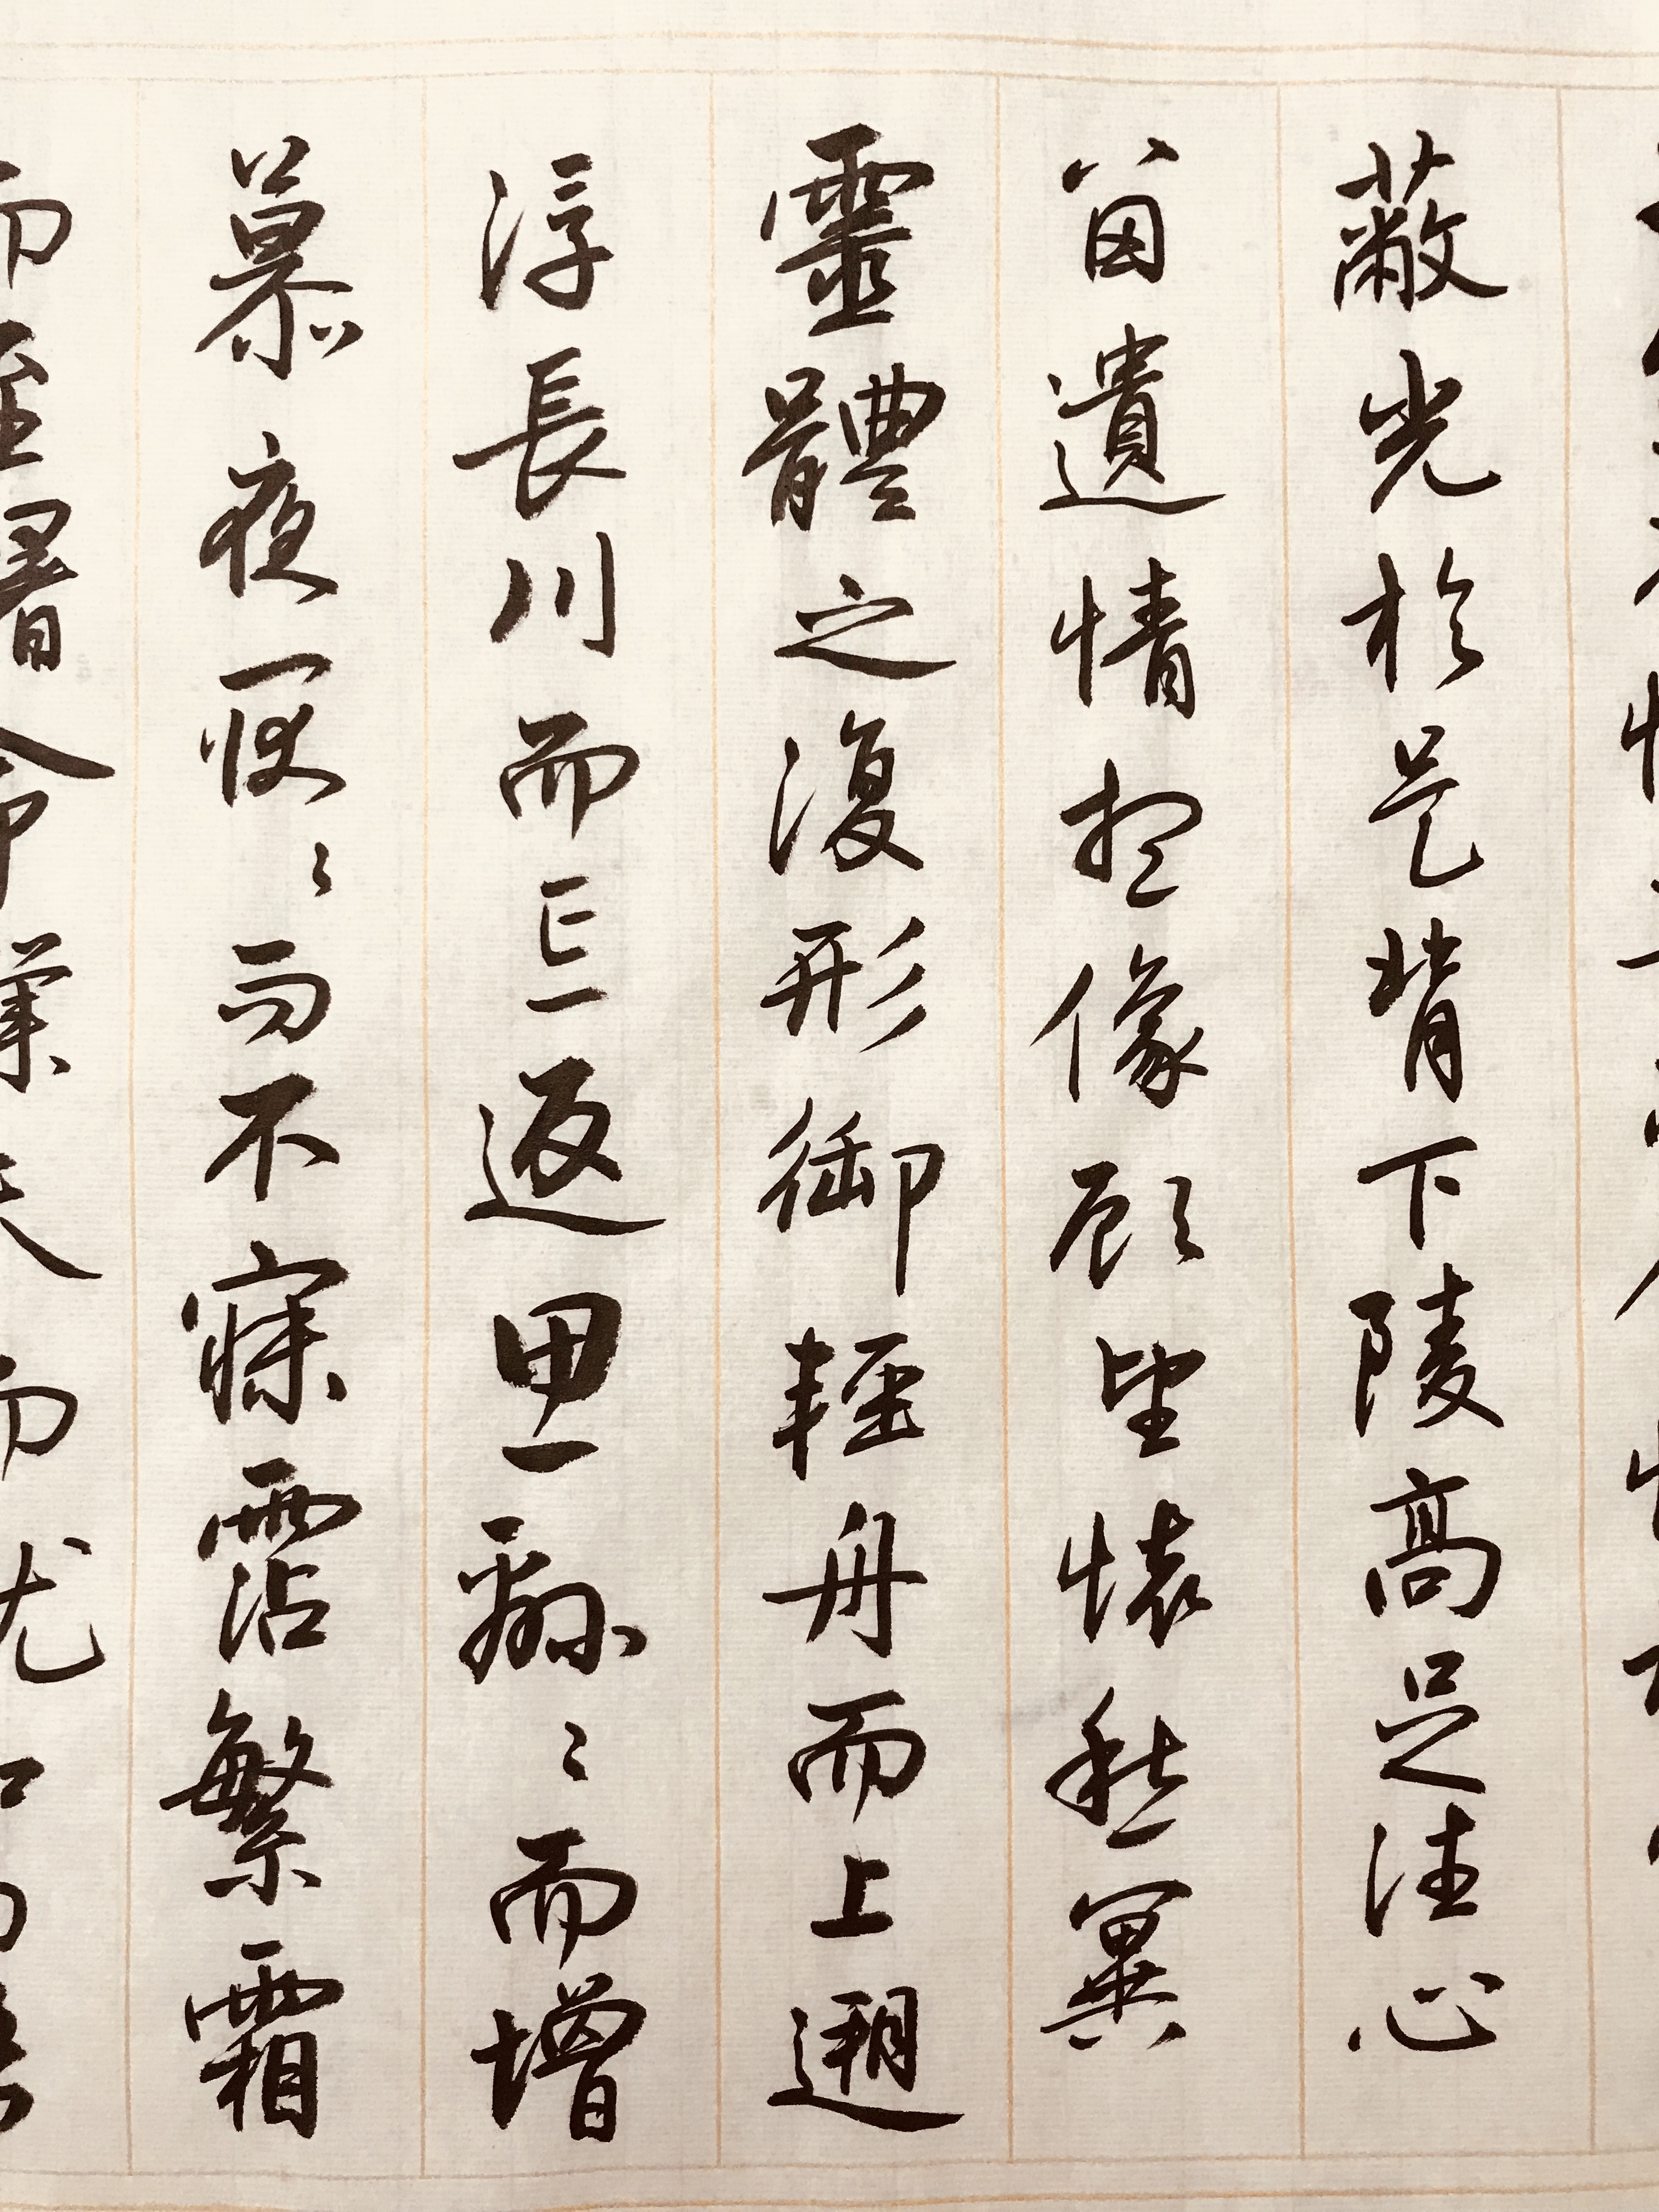 蔽光於是背下陵高足往心
留遺情想像顧望懷愁冀
靈體之復形御輕舟而上遡
浮長川而忘返思緜〻而增
慕夜耿〻而不寐霑繁霜